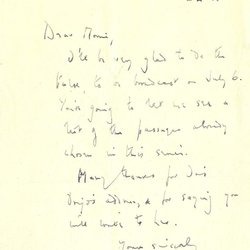 Dear
I'll be very glad to do the
to be broadcast on July 6.
You're going to let me see a
list of the passages already
chosen in this series.
Many thanks for
address, & for saying you
will write to her.
Yours sincerely